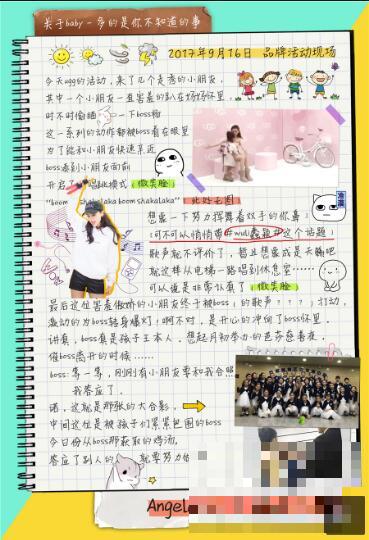 关于baby-多的是你不知道的事
2017年9月16日 品牌活动现场
今天ugg的活动,来了几个走秀的小朋友,
其中一个小朋友一直害羞的趴在妈妈怀里
时不时偷瞄 一下boss粉
这一系列的动作都被boss看在眼里
为了能和小朋友快速亲近
boss凑到小朋友面前
开启了 唱跳模式(微笑脸)
"boom shakalaka boom shakalaka" 此处无图
想象一下努力挥舞着双手的你喜
(可不可以悄悄带#wuli蠢颖#这个话题)
歌声就不评价了,暂且想象成是天籁吧
就这样从电梯一路唱到休息室……
可以说是非常认真了(微笑脸)
最后这位害羞傲娇的小朋友终于被boss(的歌声???)打动,
激动的为boss转身爆灯!啊不对,是开心的冲向了boss怀里。
讲真,boss真是孩子王本人,想起月初举办的芭莎慈善夜
催boss离开的时候……
boss:等一等,刚刚有小朋友要和我合照
我答应了。
喏,这就是那张的大合影,
中间这位是被孩子们紧紧包围的boss
今日份从boss那获取的鸡汤,
答应了别人的 就要努力做
Angel